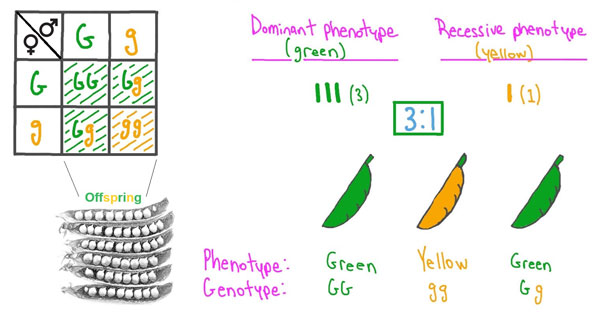 ♀ ♂ G g
G GG Gg
g Gg gg
Offspring
Dominant phenotype
(green)
Recessive phenotype
(yellow)
III (3)
I (1)
3:1
Phenotype: Green Yellow Green
Genotype: GG gg Gg